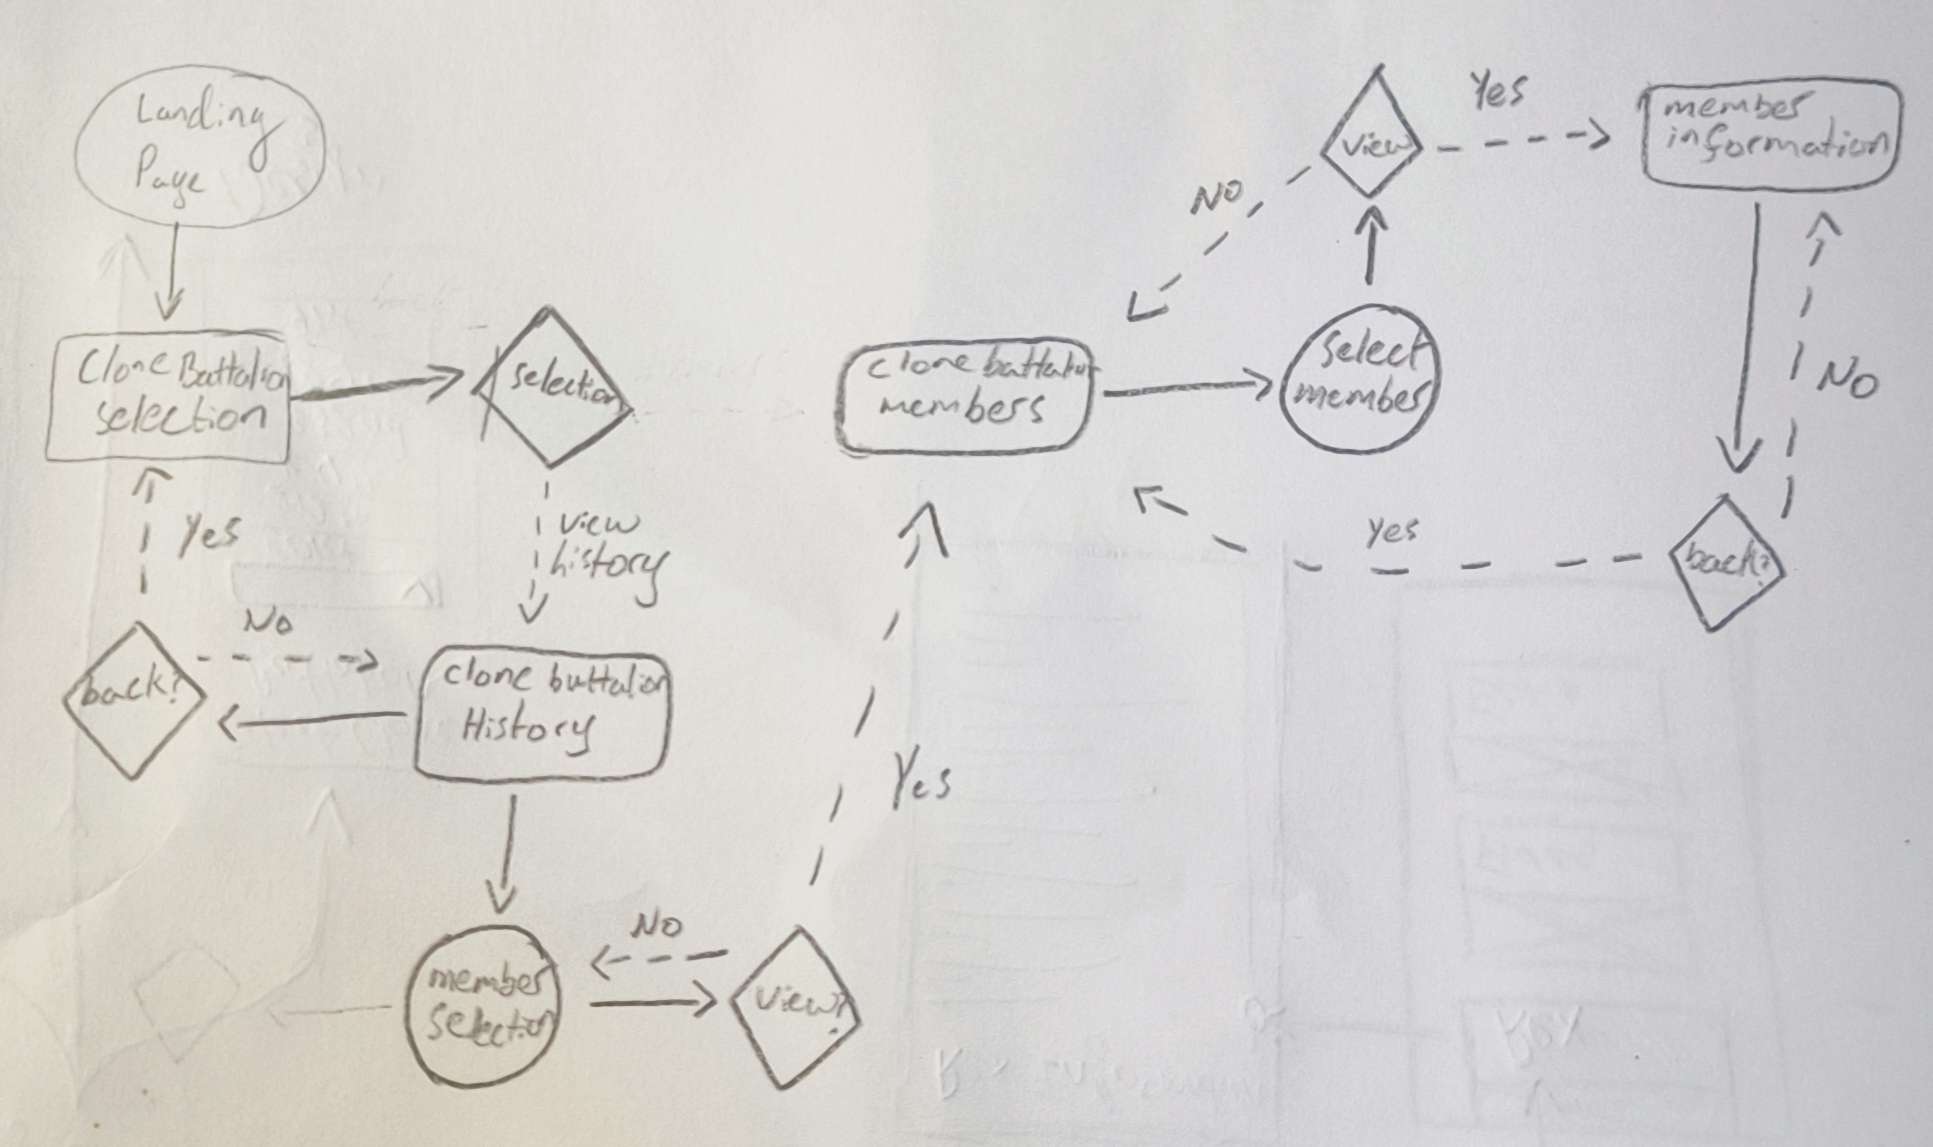 Landing
Page
Clone Battalion
selection
selection
view
history
Yes
No
back?
clone buttalion
History
member
selection
No
view?
Yes
clone battalion
members
select
member
view
No
Yes
member
information
No
back?
yes
Rex